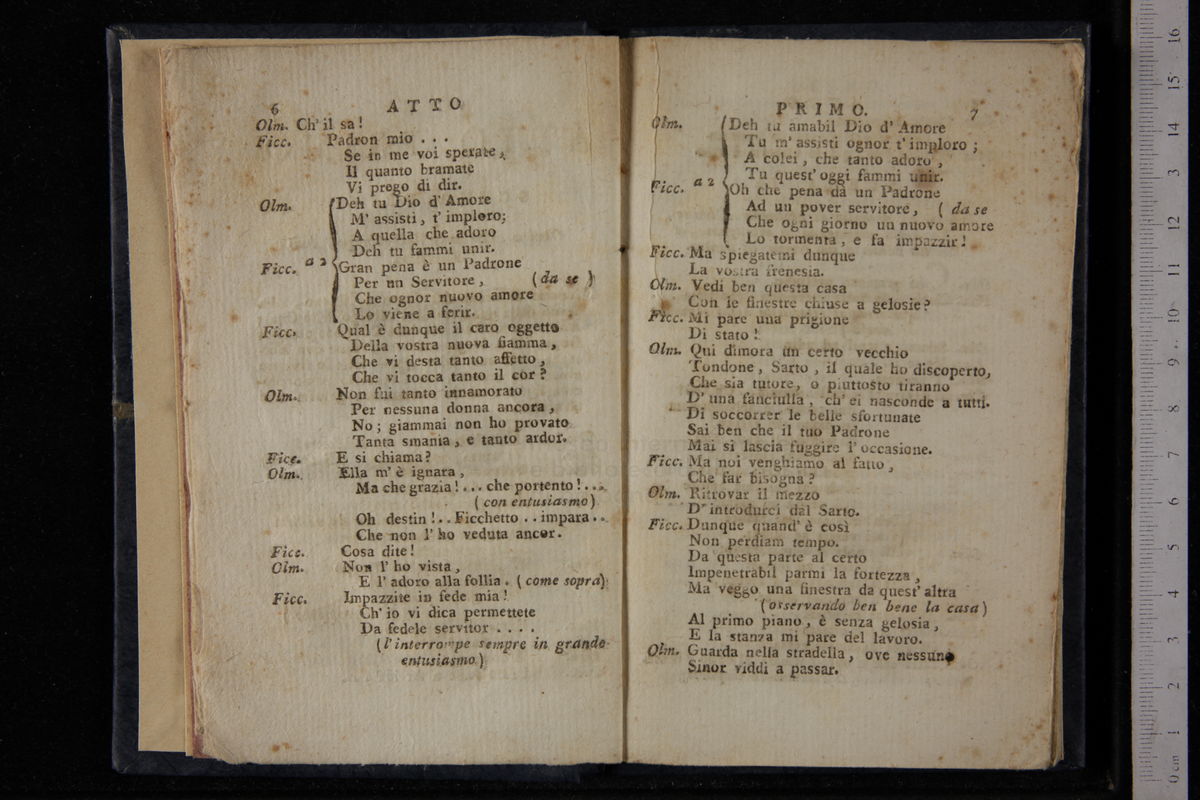 6 ATTO
Olm. Ch' il sa!
Ficc. Padron mio . . .
Se in me voi sperate,
Il quanto bramate
Vi prego di dir.
Olm. Deh tu Dio d' Amore
M' assisti, t' imploro;
A quella che adoro
Deh tu fammi unir.
Ficc. a 2 Gran pena è un Padrone
Per un Servitore, (da se)
Che ognor nuovo amore
Lo viene a ferir.
Ficc. Qual è dunque il caro oggetto
Della vostra nuova fiamma,
Che vi desta tanto affetto,
Che vi tocca tanto il cor?
Olm. Non fui tanto innamorato
Per nessuna donna ancora,
No; giammai non ho provato
Tanta smania, e tanto ardor.
Ficc. E si chiama?
Olm. Ella m' è ignara,
Ma che grazia!... che portento!...
(con entusiasmo)
Oh destin!.. Ficchetto .. impara..
Che non l' ho veduta ancor.
Ficc. Cosa dite!
Olm. Non l' ho vista,
E l' adoro alla follia. (come sopra)
Ficc. Impazzite in fede mia!
Ch' io vi dica permettete
Da fedele servitor . . . .
(l'interrompe sempre in grande
entusiasmo)
PRIMO. 7
Olm. Deh tu amabil Dio d' Amore
Tu m' assisti ognor t' imploro;
A colei, che tanto adoro,
Tu quest' oggi fammi unir.
Ficc. a 2 Oh che pena dà un Padrone
Ad un pover servitore, (da se
Che ogni giorno un nuovo amore
Lo tormenta, e fa impazzir!
Ficc. Ma spiegatemi dunque
La vostra frenesia.
Olm. Vedi ben questa casa
Con le finestre chiuse a gelosie?
Ficc. Mi pare una prigione
Di stato!
Olm. Qui dimora un certo vecchio
Tondone, Sarto, il quale ho discoperto,
Che sia tutore, o piuttosto tiranno
D' una fanciulla, ch' ei nasconde a tutti.
Di soccorrer le belle sfortunate
Sai ben che il tuo Padrone
Mai si lascia fuggire l' occasione.
Ficc. Ma noi venghiamo al fatto,
Che far bisogna?
Olm. Ritrovar il mezzo
D' introdurci dal Sarto.
Ficc. Dunque quand' è così
Non perdiam tempo.
Da questa parte al certo
Impenetrabil parmi la fortezza,
Ma veggo una finestra da quest' altra
(osservando ben bene la casa)
Al primo piano, è senza gelosia,
E la stanza mi pare del lavoro.
Olm. Guarda nella stradella, ove nessuno
Sinor viddi a passar.